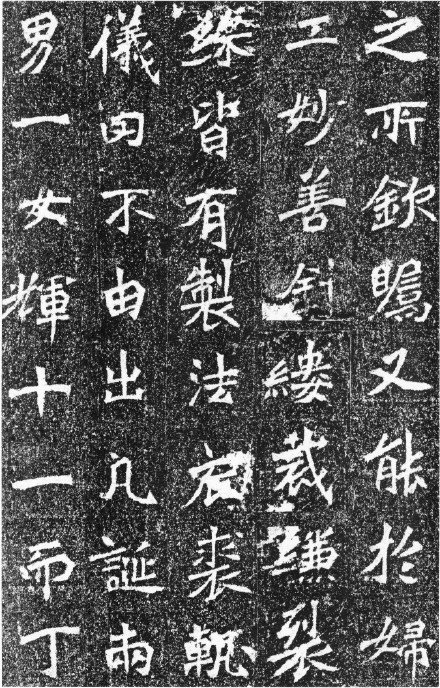 之所欽矚又能於婦
工妙善針縷裁縑裂
皆有製法裘軌
儀罔不由出凡誕兩
男一女輝十一而丁